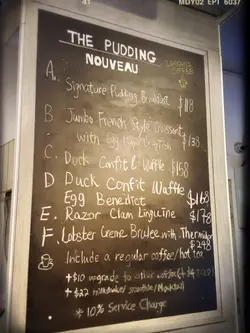 41
MDY02 EPT 6037
THE PUDDING
NOUVEAU
COFFEE
A. Signature Pudding Breakfast $118
B. Jumbo French Style Croissant
with Egg Mayo Crayfish $138
C. Duck Confit & Waffle $158
D Duck Confit Waffle
Egg Benedict $168
E. Razor Clam Linguine $178
F. Lobster Creme Brulee with Thermidor
$248
Include a regular coffee/hot tea
+$10 upgrade to other coffee
+$22 milkshake/smoothie/Mocktail
* 10% Service Charge